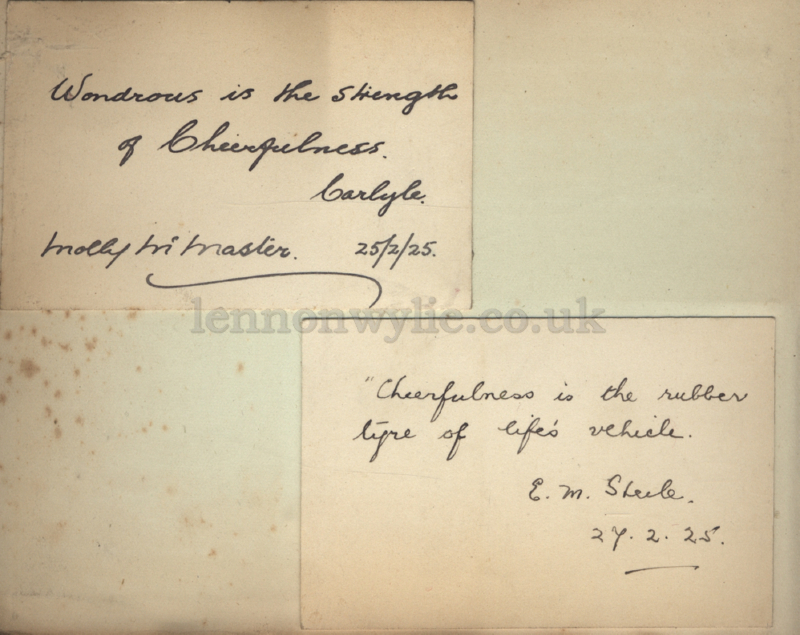 Wondrous is the strength
of Cheerfulness.
Carlyle.
Molly McMaster. 25/2/25.
lennonwylie.co.uk
"Cheerfulness is the rubber
tyre of life's vehicle.
E. M. Steele.
27.2.25.